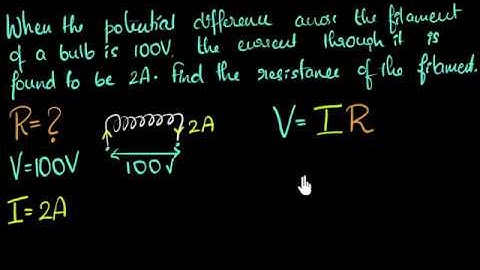 When the potential difference across the filament
of a bulb is 100V, the current through it is
found to be 2A. Find the resistance of the filament.
R=?
2A
V = IR
V=100V
100V
I=2A